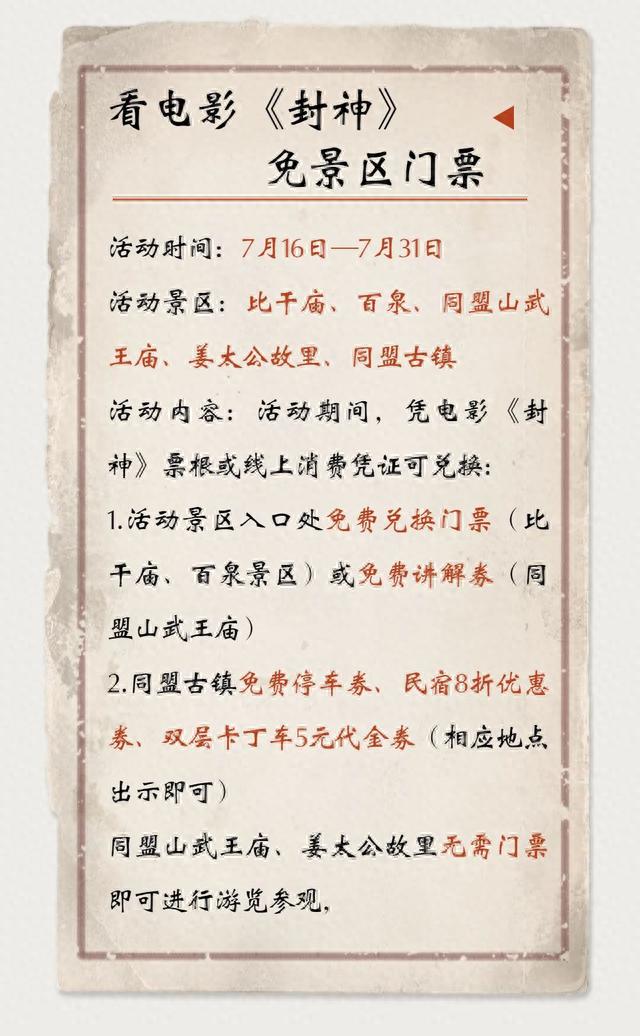 看电影《封神》
免景区门票
活动时间：7月16日—7月31日
活动景区：比干庙、百泉、同盟山武
王庙、姜太公故里、同盟古镇
活动内容：活动期间，凭电影《封
神》票根或线上消费凭证可兑换：
1.活动景区入口处免费兑换门票（比
干庙、百泉景区）或免费讲解券（同
盟山武王庙）
2.同盟古镇免费停车券、民宿8折优惠
券、双层卡丁车5元代金券（相应地点
出示即可）
同盟山武王庙、姜太公故里无需门票
即可进行游览参观，